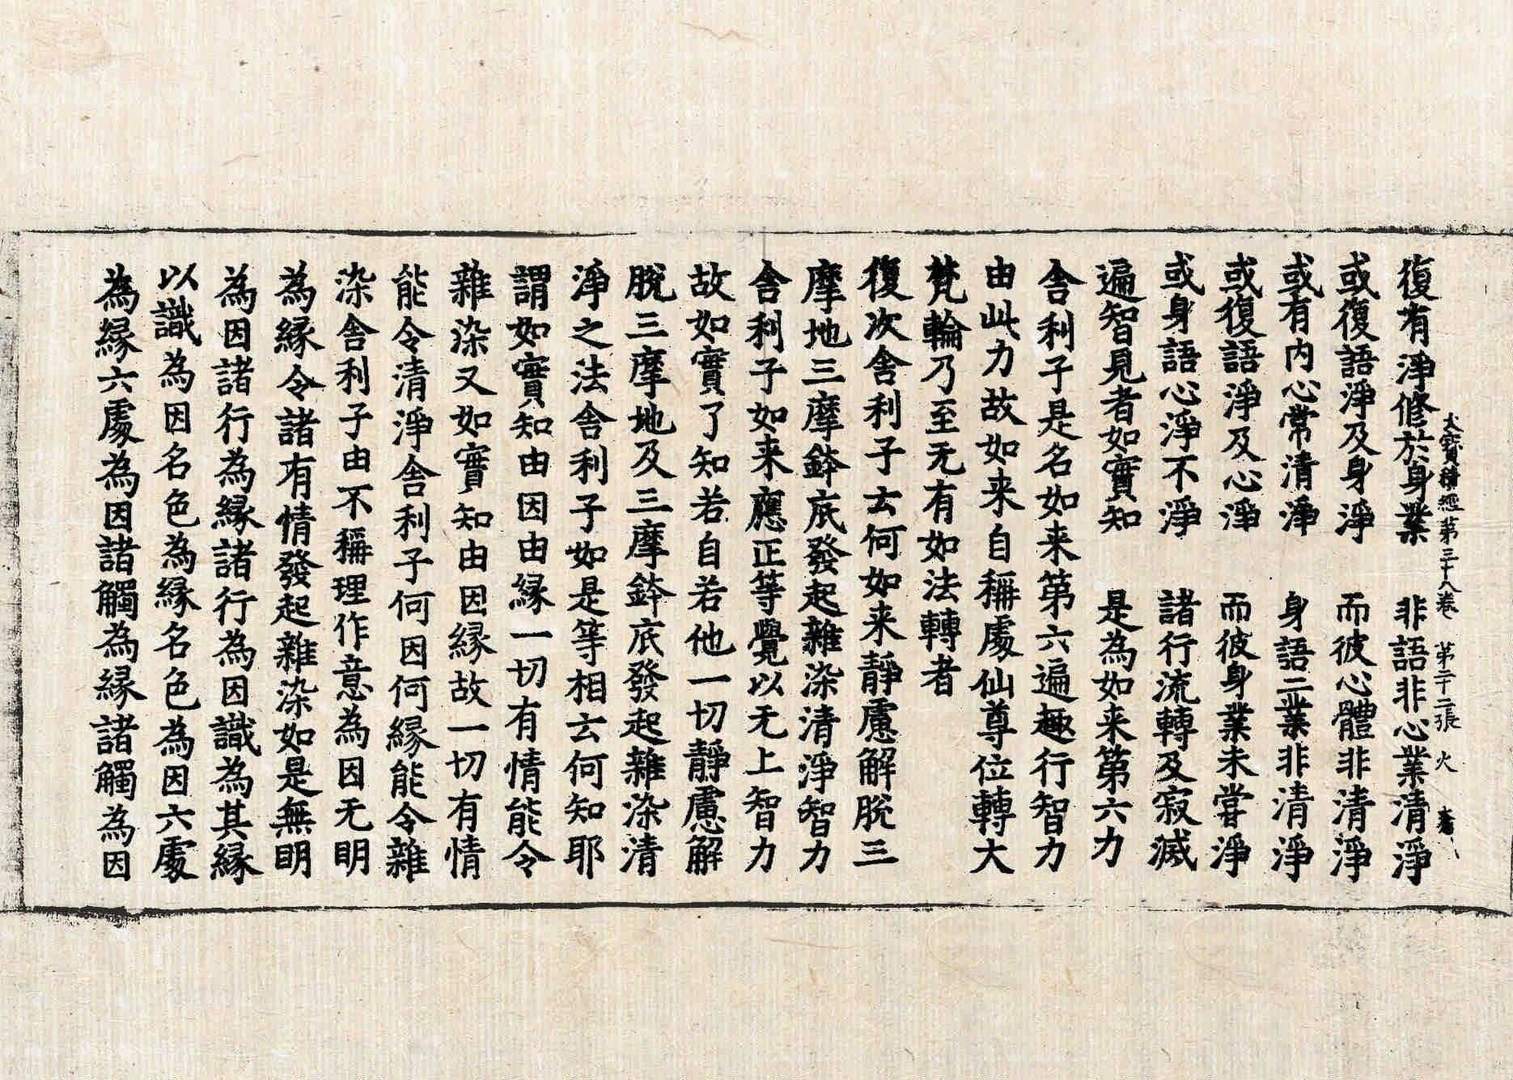 大寶積經第三十八卷　第二十二張　火
復有淨修於身業　非語非心業清淨
或復語淨及身淨　而彼心體非清淨
或有内心常清淨　身語二業非清淨
或復語淨及心淨　而彼身業未甞淨
或身語心淨不淨　諸行流轉及寂滅
遍智見者如實知　是為如来第六力
舍利子是名如来第六遍趣行智力
由此力故如来自稱處仙尊位轉大
梵輪乃至无有如法轉者
復次舍利子云何如来靜慮解脫三
摩地三摩鉢底發起雜染清淨智力
舍利子如来應正等覺以无上智力
故如實了知若自若他一切靜慮解
脫三摩地及三摩鉢底發起雜染清
淨之法舍利子如是等相云何知耶
謂如實知由因由緣一切有情能令
雜染又如實知由因緣故一切有情
能令清淨舍利子何因何緣能令雜
染舍利子由不稱理作意為因无明
為緣令諸有情發起雜染如是無明
為因諸行為緣諸行為因識為其緣
以識為因名色為緣名色為因六處
為緣六處為因諸觸為緣諸觸為因